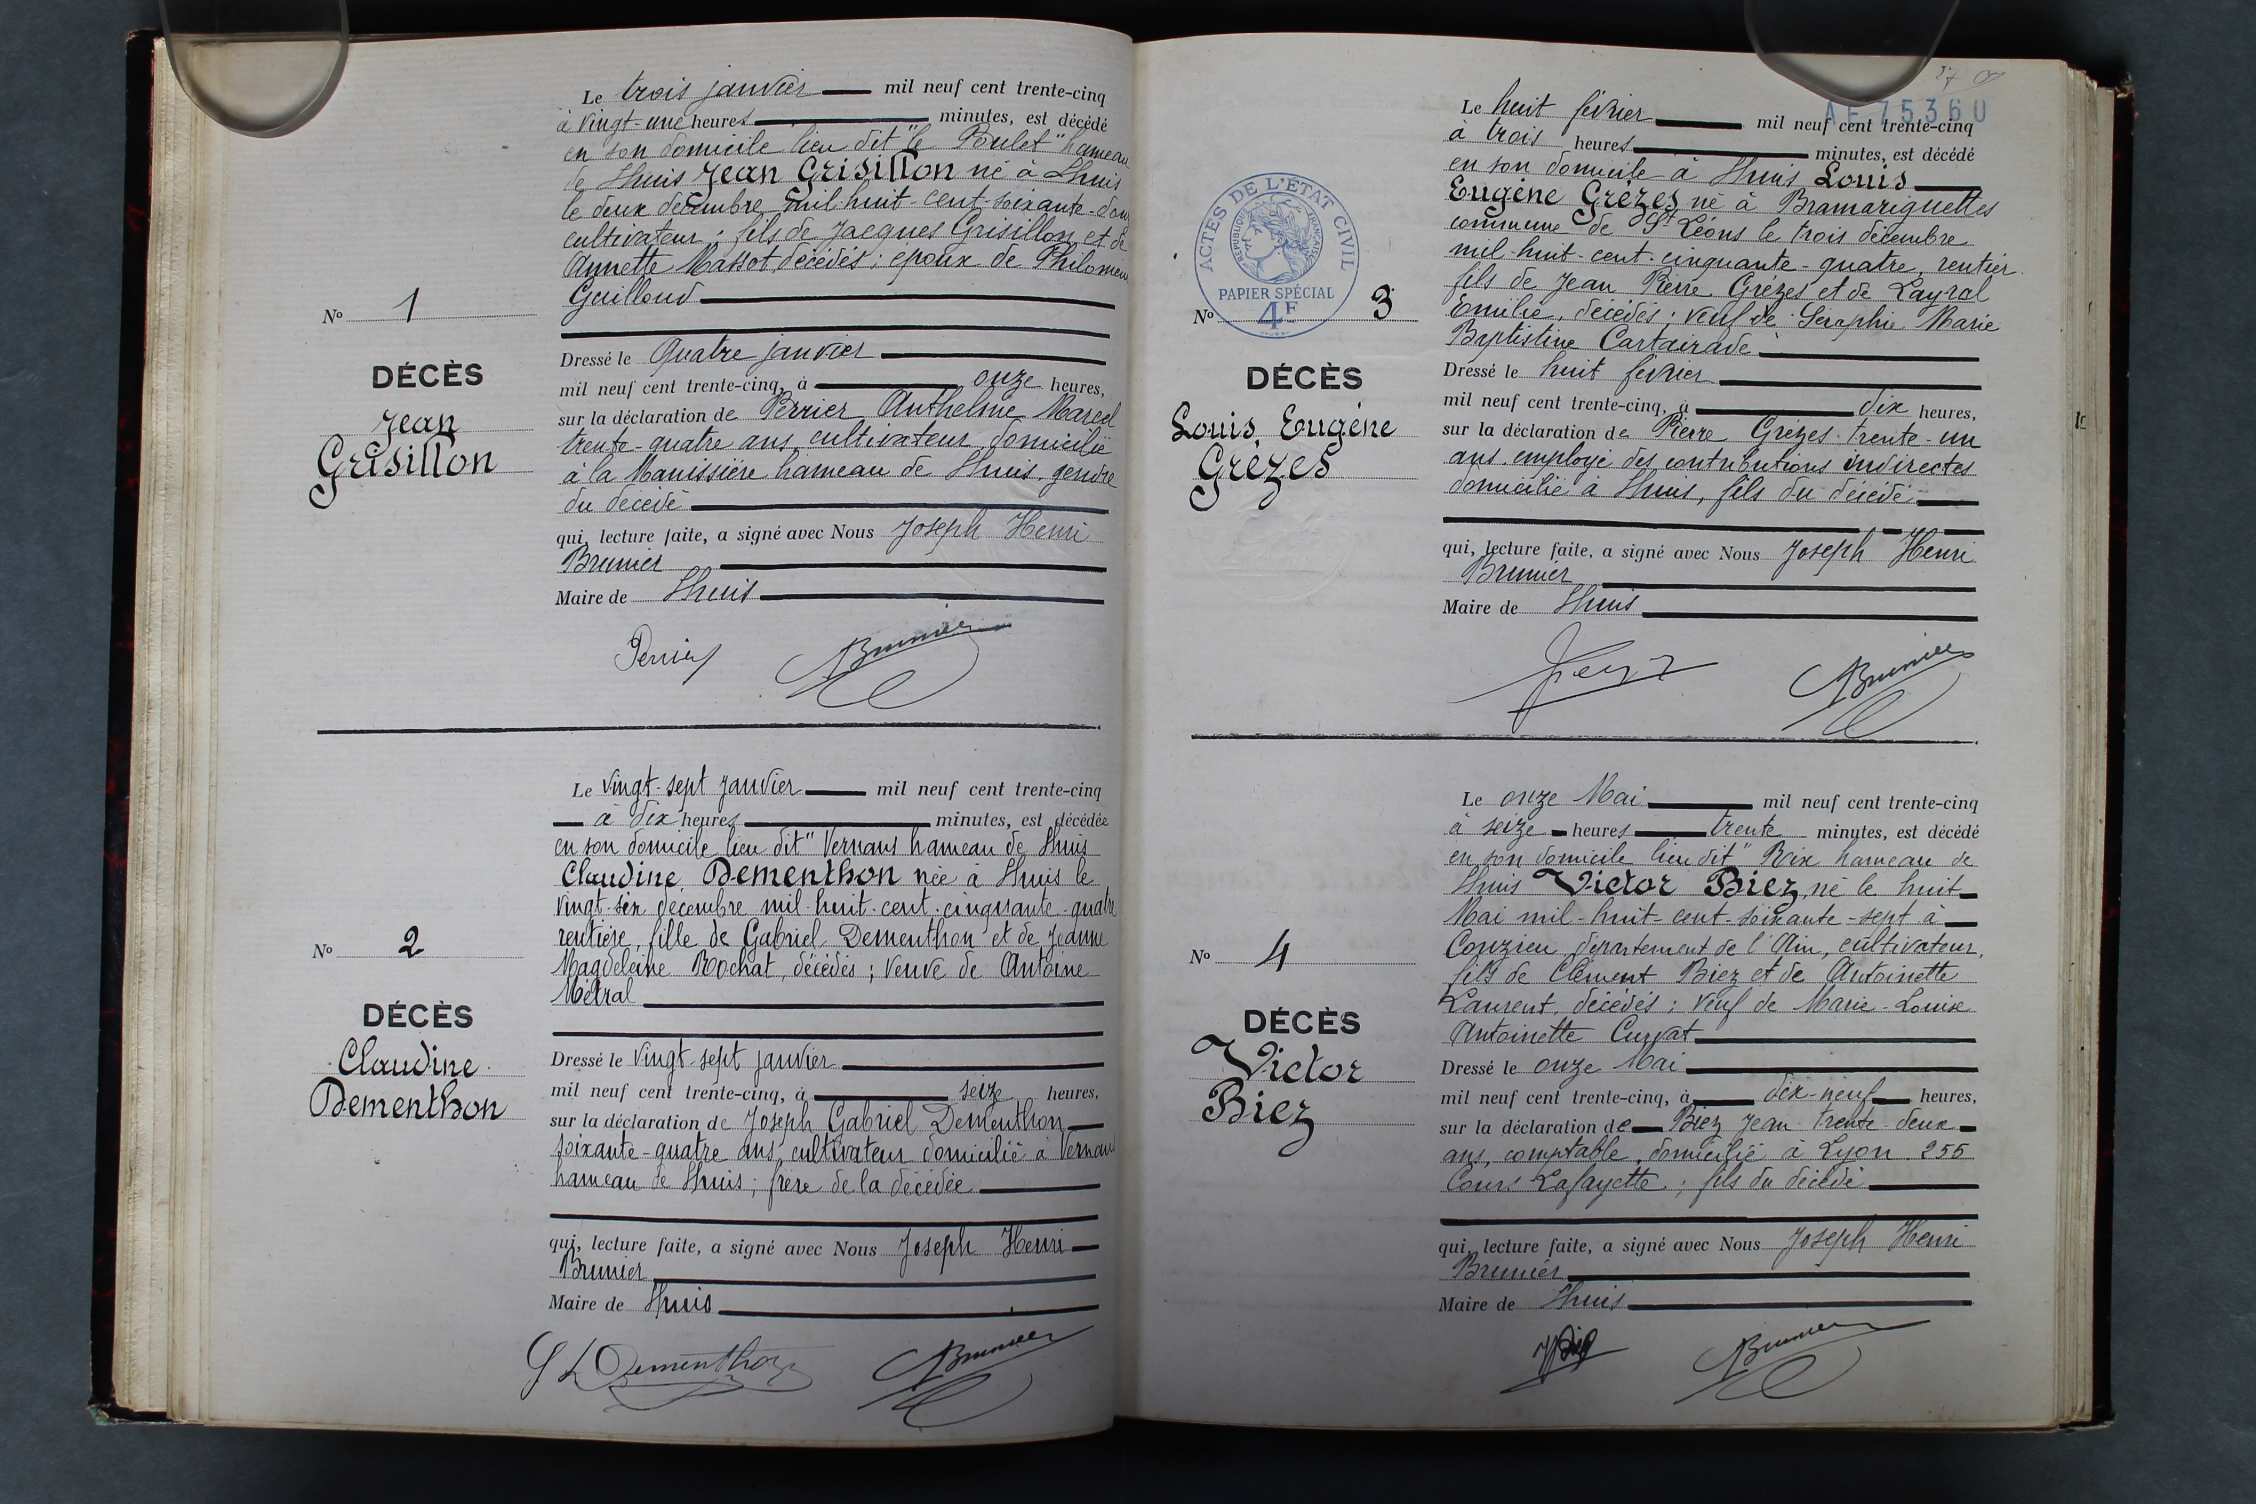 Le trois janvier mil neuf cent trente-cinq
à vingt-une heures minutes, est décédé
en son domicile lieu dit "le Poulet" hameau
de Lhuis Jean Grisillon né à Lhuis
le deux décembre mil-huit-cent-soixante-
cultivateur; fils de Jacques Grisillon et de
Annette Massot, décédés; époux de
Guilloud
No 1
DÉCÈS
Jean
Grisillon
Dressé le quatre janvier
mil neuf cent trente-cinq, à onze heures,
sur la déclaration de Perrier Anthelme Marcel
trente-quatre ans, cultivateur domicilié
à la Manissière hameau de Lhuis, gendre
du décédé
qui, lecture faite, a signé avec Nous Joseph Henri
Brunier
Maire de Lhuis
Perrier Brunier
Le vingt-sept janvier mil neuf cent trente-cinq
à dix heures minutes, est décédée
en son domicile lieu dit "Vernans hameau de Lhuis
Claudine Dementhon née à Lhuis le
vingt-six décembre mil-huit-cent-cinquante-quatre
rentière, fille de Gabriel Dementhon et de Jeanne
Magdeleine Rochat, décédés; veuve de Antoine
Métral
No 2
DÉCÈS
Claudine
Dementhon
Dressé le vingt-sept janvier
mil neuf cent trente-cinq, à seize heures,
sur la déclaration de Joseph Gabriel Dementhon
soixante-quatre ans, cultivateur domicilié à Vernans
hameau de Lhuis; frère de la décédée
qui, lecture faite, a signé avec Nous Joseph Henri
Brunier
Maire de Lhuis
Dementhon Brunier
AE 75360
ACTES DE L'ÉTAT CIVIL
RÉPUBLIQUE FRANÇAISE
PAPIER SPÉCIAL
4F
Le huit février mil neuf cent trente-cinq
à trois heures minutes, est décédé
en son domicile à Lhuis Louis
Eugène Grèzes né à Bramariguettes
commune de St Léons le trois décembre
mil-huit-cent-cinquante-quatre, rentier
fils de Jean Pierre Grèzes et de Layral
Emilie, décédés; veuf de Séraphie Marie
Baptistine Cartairade
No 3
DÉCÈS
Louis, Eugène
Grèzes
Dressé le huit février
mil neuf cent trente-cinq, à dix heures,
sur la déclaration de Pierre Grèzes trente-un
ans employé des contributions indirectes
domicilié à Lhuis, fils du décédé
qui, lecture faite, a signé avec Nous Joseph Henri
Brunier
Maire de Lhuis
Brunier
Le onze Mai mil neuf cent trente-cinq
à seize heures trente minutes, est décédé
en son domicile lieu dit "Rix hameau de
Lhuis Victor Biez, né le huit
Mai mil-huit-cent-soixante-sept à
Conzieu département de l'Ain, cultivateur,
fils de Clément Biez et de Antoinette
Laurent, décédés; veuf de Marie-Louise
Antoinette Curvat
No 4
DÉCÈS
Victor
Biez
Dressé le onze Mai
mil neuf cent trente-cinq, à dix-neuf heures,
sur la déclaration de Biez Jean trente deux
ans, comptable, domicilié à Lyon 255
Cours Lafayette; fils du décédé
qui, lecture faite, a signé avec Nous Joseph Henri
Brunier
Maire de Lhuis
JBiez Brunier